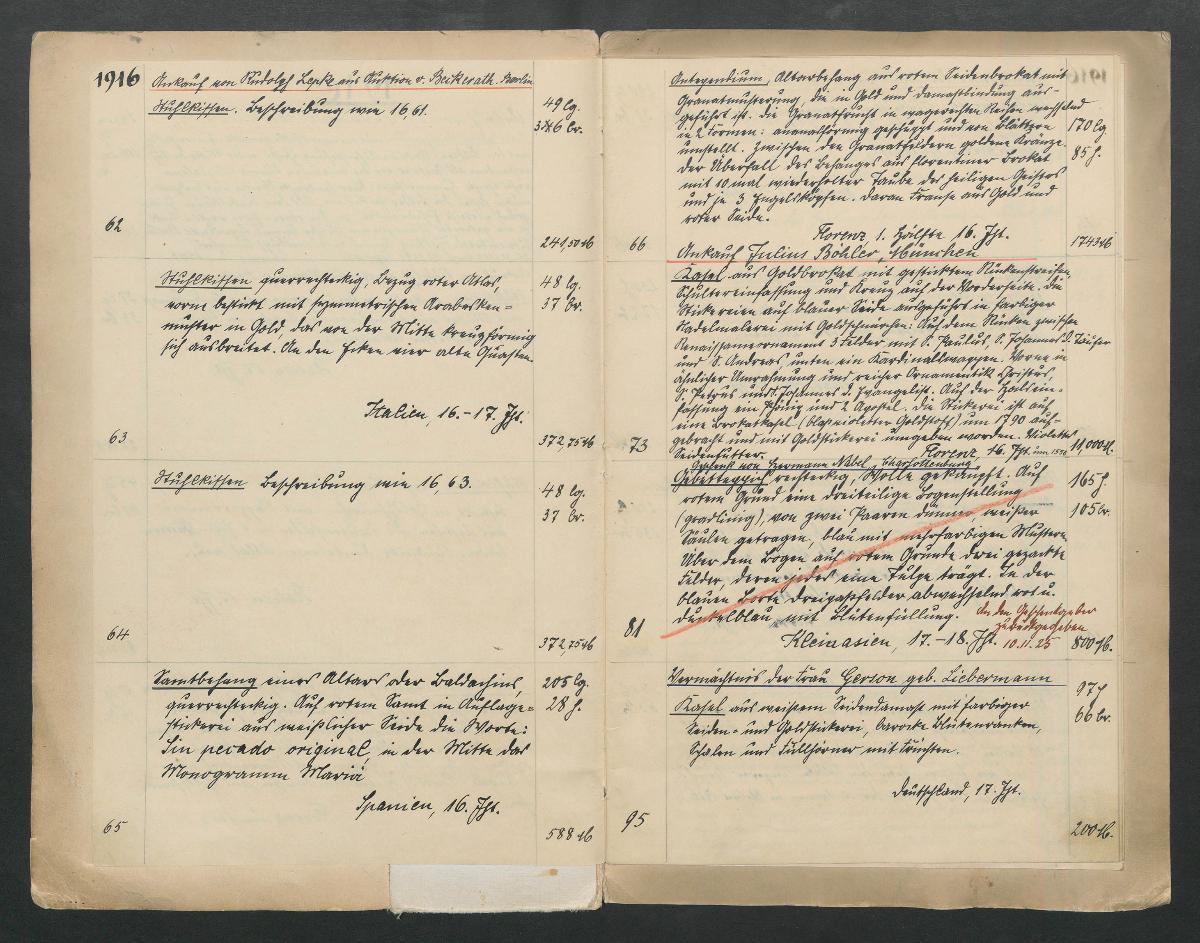 1916
Ankauf von Rudolph Lepke aus Auktion v. Beckerath. Berlin
Stuhlkissen. Beschreibung wie 16,61.
49 lg.
br.
62
241,50 M
Stuhlkissen querrechteckig, Bezug roter Atlas,
vorne bestickt mit symmetrischen Arabesken-
muster in Gold das von der Mitte kreuzförmig
sich ausbreitet. An den Ecken vier alte Quasten
48 lg.
37 br.
Italien, 16.-17. Jht.
63
372,75 M
Stuhlkissen Beschreibung wie 16,63.
48 lg.
37 br.
64
372,75 M
Samtbehang eines Altars oder Baldachins,
querrechteckig. Auf rotem Samt in Auflage-
stickerei aus weißlicher Seide die Worte:
Sin pecado original, in der Mitte das
Monogramm Mariä
205 lg.
28 h.
Spanien, 16. Jht.
65
588 M
Antependium, Altarbehang aus rotem Seidenbrokat mit
Granatmusterung, die in Gold und Damastbindung aus-
geführt ist. Die Granatfrucht in wagerechten Reihen wechselnd
in 2 Formen: ananasförmig geschuppt und von Blättern
umstellt. Zwischen den Granatfeldern goldene Kränze.
Der Überfall des Behanges aus florentiner Brokat
mit 10 mal wiederholter Taube des heiligen Geistes
und je 3 Engelsköpfen. Daran Franse aus Gold und
roter Seide.
170 lg
85 h.
Florenz, 1. Hälfte 16. Jht.
66
1743 M
Ankauf Julius Böhler, München
Kasel aus Goldbrokat mit gestickten Rückenstreifen,
Schultereinfassung und Kreuz auf der Vorderseite. Die
Stickereien auf blauer Seide ausgeführt in farbiger
Nadelmalerei mit Goldschnürchen. Auf dem Rücken zwischen
Renaissanceornament 3 Felder mit S. Paulus, S. Johannes d. Täufer
und S. Andreas unten ein Kardinalswappen. Vorne in
ähnlicher Umrahmung und reicher Ornamentik Christus,
S. Petrus und Johannes d. Evangelist. Auf der Halsein-
fassung ein König und 2 Apostel. Die Stickerei ist auf
eine Brokatkasel (blaßvioletter Goldstoff) um 1790 auf-
gebracht und mit Goldstickerei umgeben worden. Violettes
Seidenfutter.
Florenz, 16. Jht. um 1550
73
11,000 M.
Geschenk von Hermann Nabel, Charlottenburg
Gebetteppich rechteckig, Wolle geknüpft. Auf
rotem Grund eine dreiteilige Bogenstellung
(gradlinig), von zwei Paaren dünner, weißer
Säulen getragen, blau mit mehrfarbigen Mustern
Über dem Bogen auf rotem Grunde drei gezackte
Felder, deren jedes eine Tulpe trägt. In der
blauen Borte Dreipaßfelder abwechselnd rot u.
dunkelblau mit Blütenfüllung.
165 h
105 br.
An den Geschenkgeber
zurückgegeben
10.11.25
Kleinasien, 17.-18. Jht.
81
800 M.
Vermächtnis der Frau Gerson geb. Liebermann
Kasel aus weißem Seidendamast mit farbiger
Seiden- und Goldstickerei, barocke Blütenranken,
Schalen und Füllhörner mit Früchten.
97 h
66 br.
Deutschland, 17. Jht.
95
200 M.